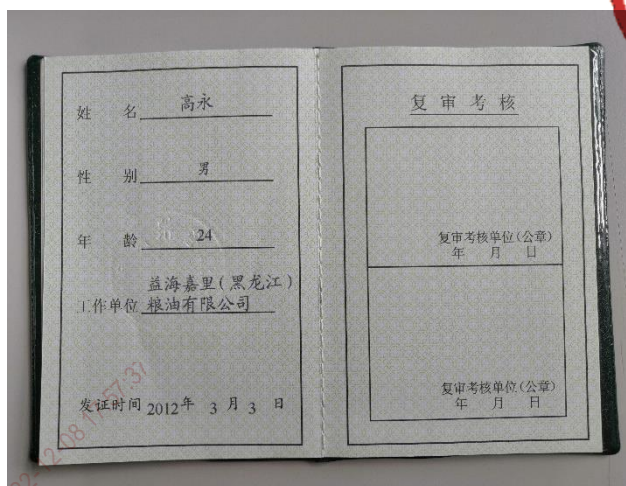 姓 名 高永
性 别 男
年 龄 24
益海嘉里(黑龙江)
工作单位 粮油有限公司
发证时间 2012年 3 月 3 日
复审考核
复审考核单位(公章)
年 月 日
复审考核单位(公章)
年 月 日